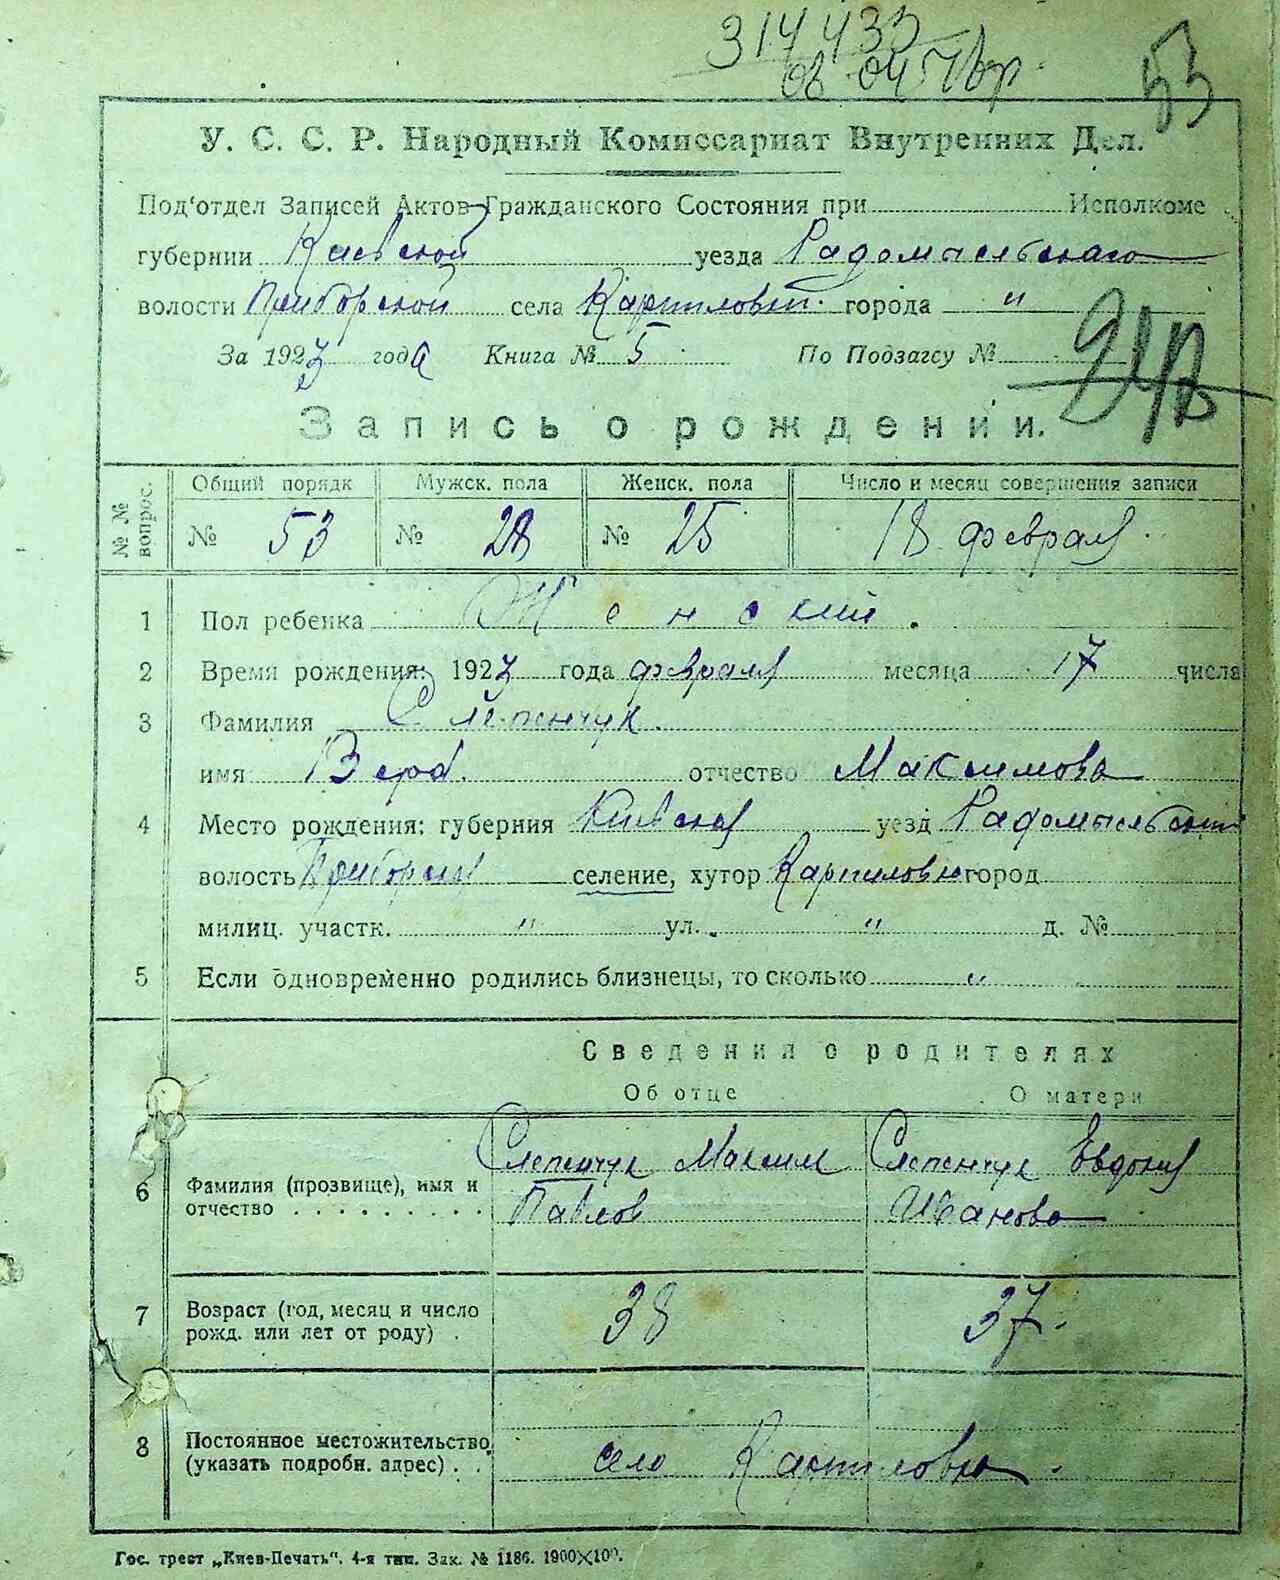 314433
53
У. С. С. Р. Народный Комиссариат Внутренних Дел.
Под'отдел Записей Актов Гражданского Состояния при Исполкоме
губернии Киевской уезда Радомысльскаго
волости Приборской села Карпиловки города "
За 1923 года Книга № 5 По Подзагсу №
Запись о рождении.
№ № вопрос. Общий порядк Мужск. пола Женск. пола Число и месяц совершения записи
№ 53 № 28 № 25 18 февраля
1 Пол ребенка Женский.
2 Время рождения: 1923 года февраля месяца 17 числа
3 Фамилия Слепенчук.
имя Вера. отчество Максимова
4 Место рождения: губерния Киевская уезд Радомысльский
волость Приборская селение, хутор Карпиловка город
милиц. участк. " ул. " д. №
5 Если одновременно родились близнецы, то сколько "
Сведения о родителях
Об отце О матери
Слепенчук Максим Слепенчук Евдокия
6 Фамилия (прозвище), имя и
отчество . . . . . . . . . Павлов Иванова
7 Возраст (год, месяц и число 38 37.
рожд. или лет от роду) .
8 Постоянное местожительство,
(указать подробн. адрес) . . село Карпиловка.
Гос. трест „Киев-Печать". 4-я тип. Зак. № 1186. 1900×100.